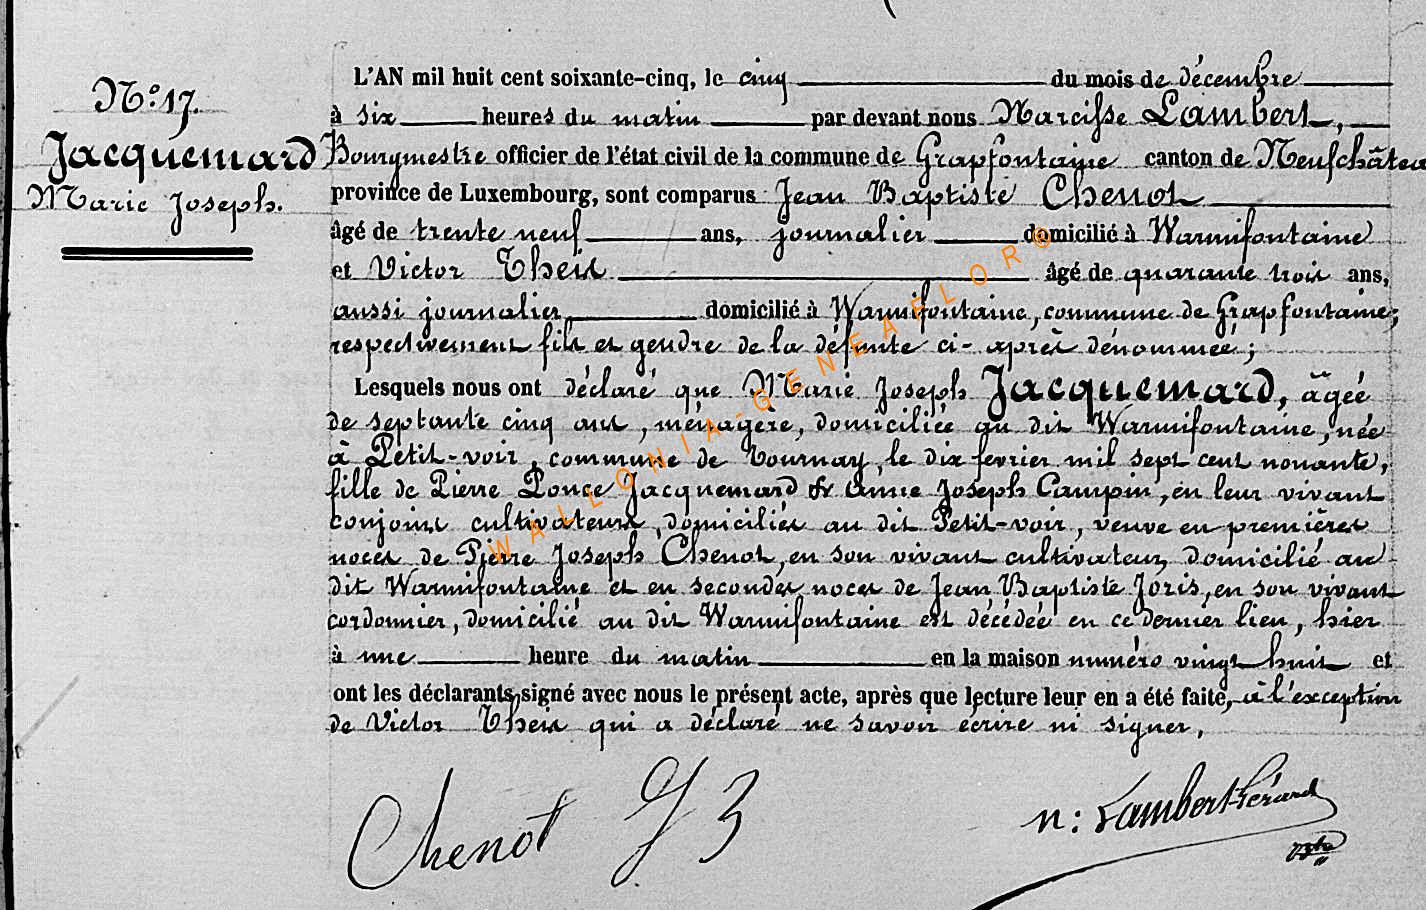 N° 17.
Jacquemard
Marie Joseph.
L'AN mil huit cent soixante-cinq, le cinq du mois de décembre
à six heures du matin par devant nous Narcisse Lambert,
Bourgmestre officier de l'état civil de la commune de Grapfontaine canton de Neufchâteau
province de Luxembourg, sont comparus Jean Baptiste Chenot
âgé de trente neuf ans, journalier domicilié à Warmifontaine
et Victor Theis âgé de quarante trois ans,
aussi journalier domicilié à Warmifontaine, commune de Grapfontaine;
respectivement fils et gendre de la défunte ci-après dénommée;
Lesquels nous ont déclaré que Marie Joseph Jacquemard, âgée
de septante cinq ans, ménagère, domiciliée au dit Warmifontaine, née
à Petit-voir, commune de Tournay, le dix fevrier mil sept cent nonante,
fille de Pierre Ponce Jacquemard & Anne Joseph Campin, en leur vivant
conjoins cultivateurs, domiciliés au dit Petit-voir, veuve en premières
noces de Pierre Joseph Chenot, en son vivant cultivateur, domicilié au
dit Warmifontaine et en secondes noces de Jean Baptiste Joris, en son vivant
cordonnier, domicilié au dit Warmifontaine est décédée en ce dernier lieu, hier
à une heure du matin en la maison numéro vingt huit et
ont les déclarants signé avec nous le présent acte, après que lecture leur en a été faite, à l'exception
de Victor Theis qui a déclaré ne savoir écrire ni signer.
Chenot J B
n: Lambert-Gérard
WALLONIA-GENEAFLOR®